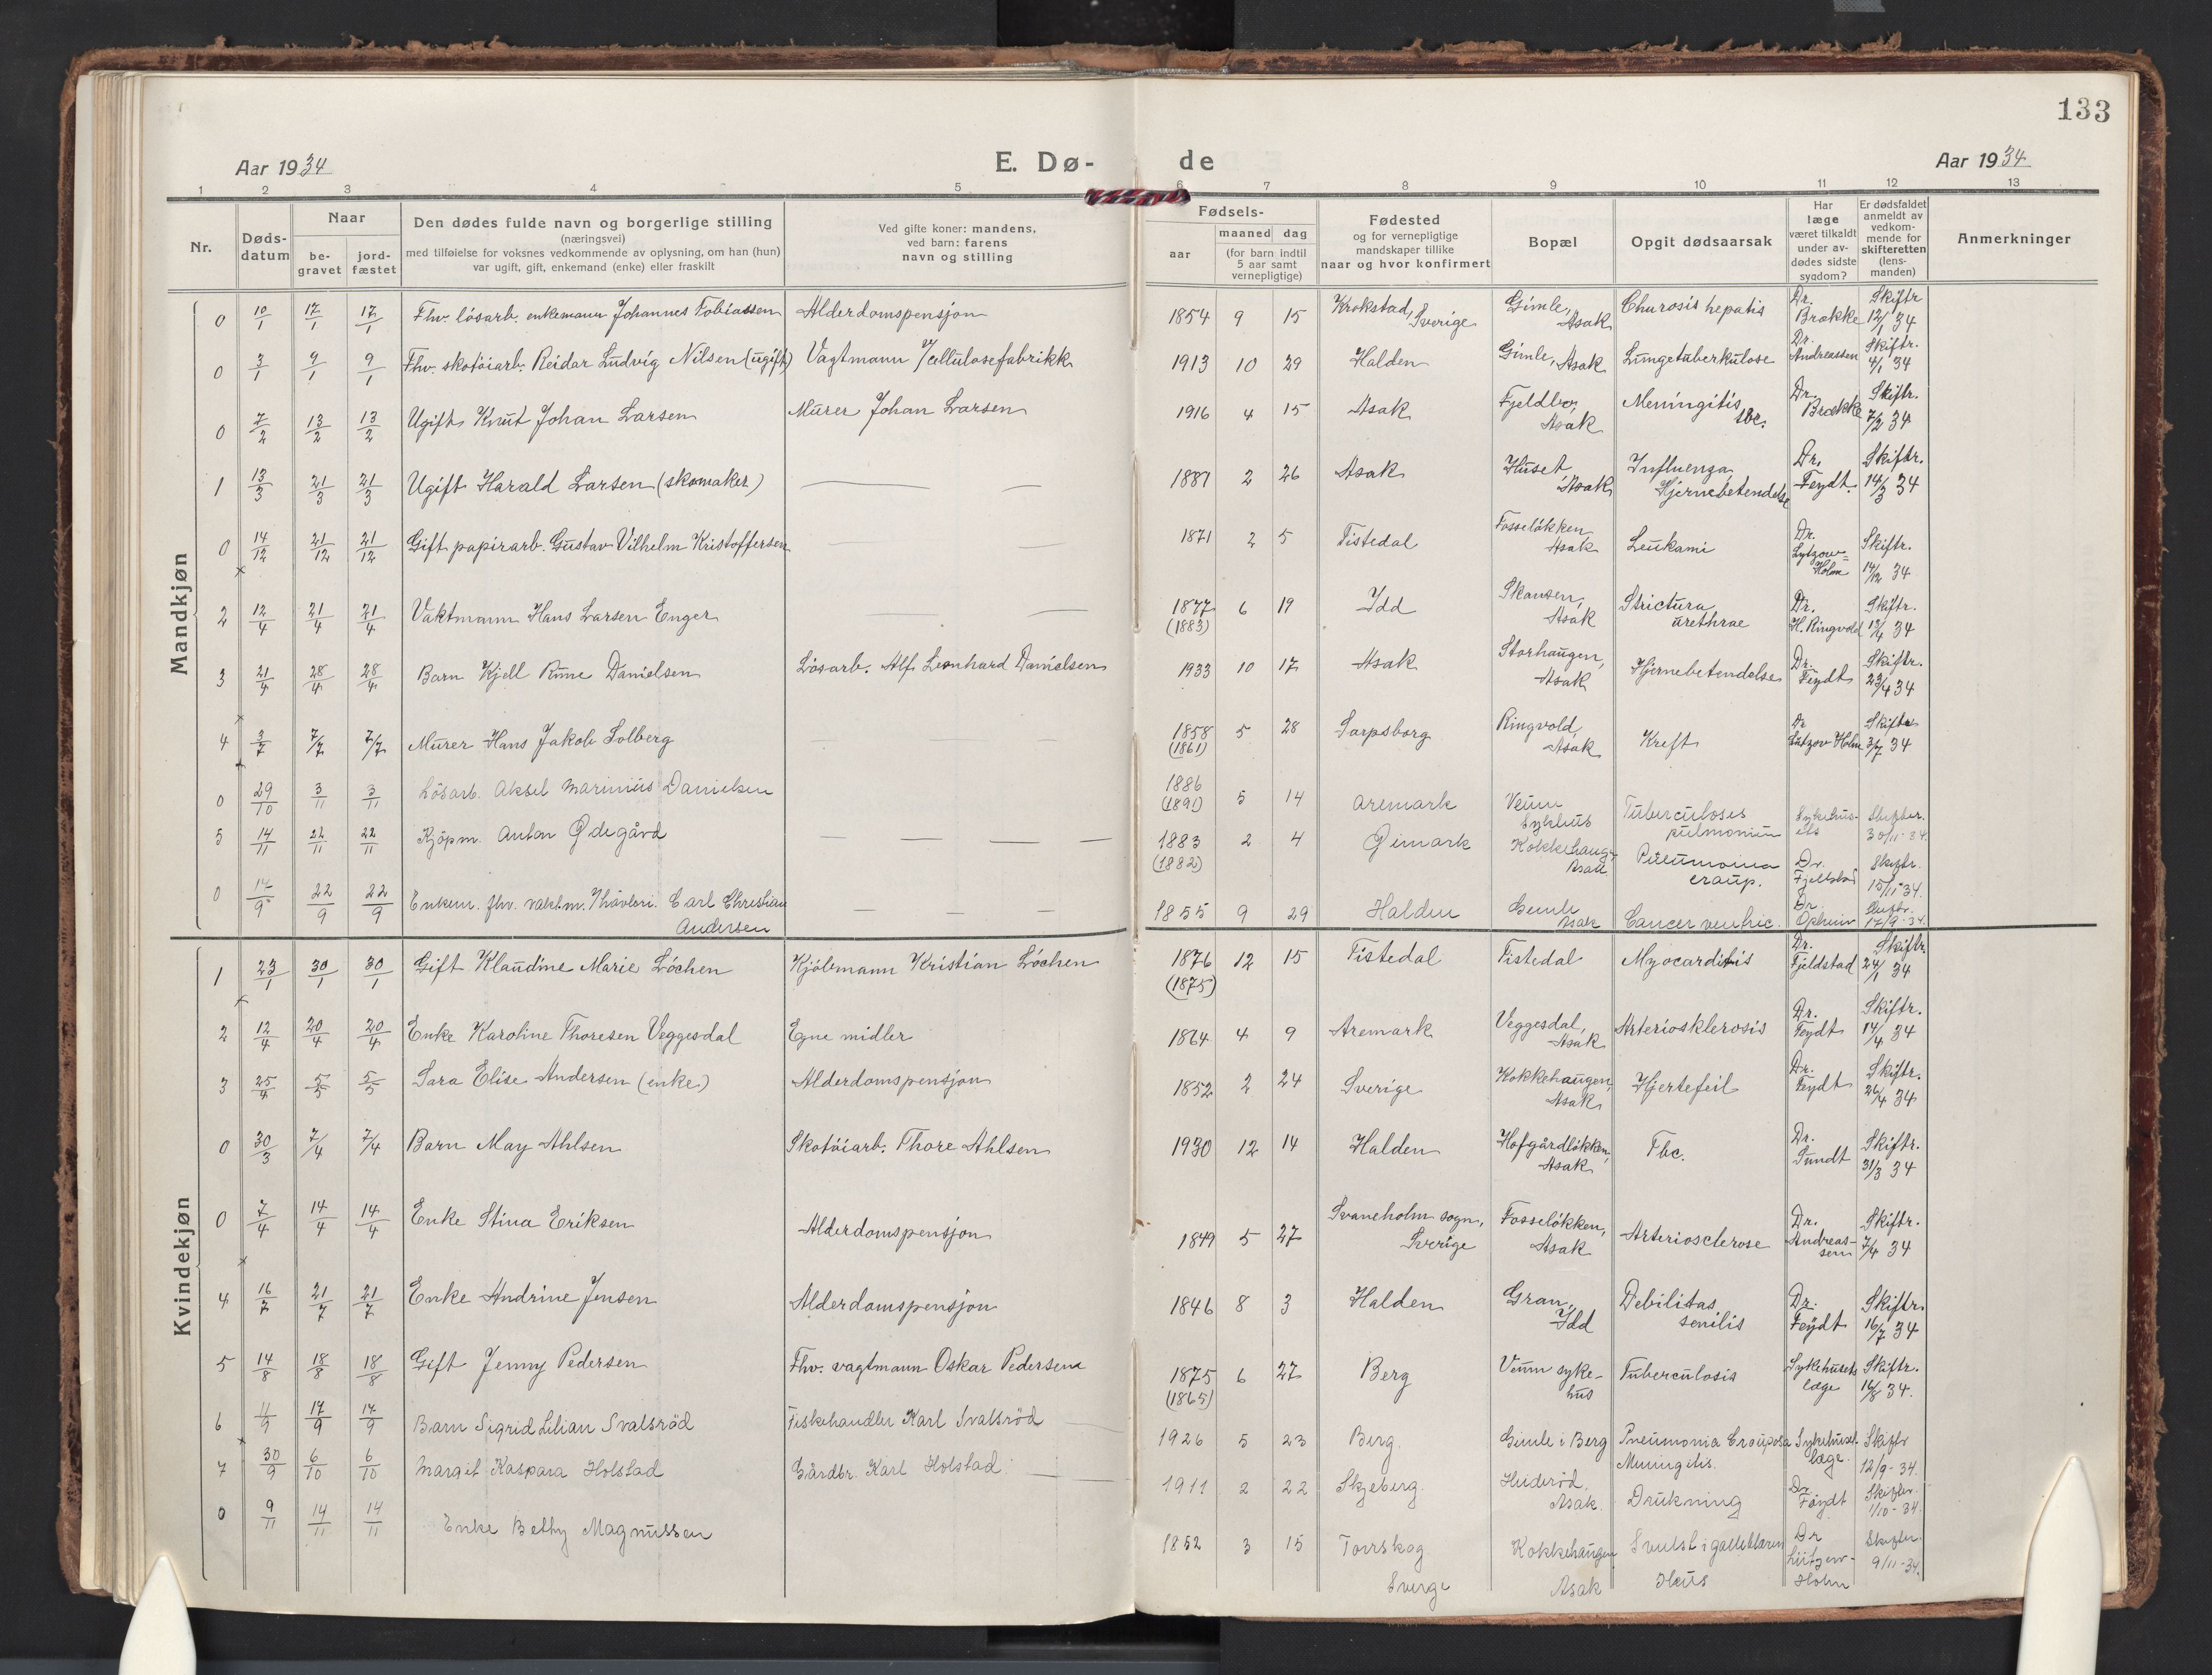 133
Aar 1934
E. Dø-
de
Aar 1934
1 2 3 4 5 6 7 8 9 10 11 12 13
Nr.
Døds-
datum
Naar
be-
gravet
jord-
fæstet
Den dødes fulde navn og borgerlige stilling
(næringsvei)
med tilføielse for voksnes vedkommende av oplysning, om han (hun)
var ugift, gift, enkemand (enke) eller fraskilt
Ved gifte koner: mandens,
ved barn: farens
navn og stilling
Fødsels-
aar
maaned dag
(for barn indtil
5 aar samt
vernepligtige)
Fødested
og for vernepligtige
mandskaper tillike
naar og hvor konfirmert
Bopæl
Opgit dødsaarsak
Har
læge
været tilkaldt
under av-
dødes sidste
sygdom?
Er dødsfaldet
anmeldt av
vedkom-
mende for
skifteretten
(lens-
manden)
Anmerkninger
Mandkjøn
0 10/1 17/1 17/1 Fhv. løsarb. enkemann Johannes Tobiassen Alderdomspensjon 1854 9 15 Krokstad, Sverige Gimle, Asak Chirosis hepatis Dr. Brække Skiftr 12/1 34
0 3/1 9/1 9/1 Fhv. skotøiarb. Reidar Ludvig Nilsen (ugift) Vagtmann v/cellulosefabrikk 1913 10 29 Halden Gimle, Asak Lungetuberkulose Dr. Andreassen Skiftr. 4/1 34
0 7/2 13/2 13/2 Ugift Knut Johan Larsen Murer Johan Larsen 1916 4 15 Asak Fjeldbo, Asak Meningitis tbc. Dr. Brække Skiftr. 7/2 34
1 13/3 21/3 21/3 Ugift Harald Larsen (skomaker) — — 1887 2 26 Asak Huset, Asak Influenza, Hjernebetendelse Dr. Feydt. Skiftr. 14/3 34
0 14/12 21/12 21/12 Gift papirarb. Gustav Vilhelm Kristoffersen — — 1871 2 5 Tistedal Fosseløkken Asak Leukami Dr. Lytzow-Holm Skiftr. 14/12 34
2 12/4 21/4 21/4 Vaktmann Hans Larsen Enger — 1877 (1883) 6 19 Idd Skansen, Asak Strictura urethrae Dr. H. Ringvold Skiftr. 12/4 34
3 21/4 28/4 28/4 Barn Kjell Rune Danielsen Løsarb. Alf Leonhard Danielsen 1933 10 17 Asak Storhaugen, Asak Hjernebetendelse Dr. Feydt Skiftr. 23/4 34
4 3/7 7/7 7/7 Murer Hans Jakob Solberg 1858 (1861) 5 28 Sarpsborg Ringvold, Asak Kreft Dr Lützov Holm Skiftr 3/7 34
0 29/10 3/11 3/11 Løsarb. Aksel Marinius Danielsen 1886 (1891) 5 14 Aremark Veum Sykehus Tuberculoses pulmonum Sykehus-ets Skifter. 30/11-34.
5 14/11 22/11 22/11 Kjøpm. Anton Ødegård — — — 1883 (1882) 2 4 Øimark Kokkehaug. Asak Pneumonia croup. Dr. Fjeldstad Skiftr. 15/11-34.
0 14/9 22/9 22/9 Enkem. fhv. vaktm. Carl Christian Andersen — — — 1855 9 29 Halden Gimle Asak Cancer ventric. Dr Skiftr. 17/9-34.
Kvindekjøn
1 23/1 30/1 30/1 Gift Klaudine Marie Løchen Kjølemann Kristian Løchen 1876 (1875) 12 15 Tistedal Tistedal Myocarditis Dr. Fjeldstad Skiftr. 24/1 34
2 12/4 20/4 20/4 Enke Karoline Thoresen Veggesdal Egne midler 1864 4 9 Aremark Veggesdal, Asak Arteriosklerosis Dr. Feydt Skiftr. 14/4 34
3 25/4 5/5 5/5 Sara Elise Andersen (enke) Alderdomspensjon 1852 2 24 Sverige Kokkehaugen, Asak Hjertefeil Dr. Feydt Skiftr. 26/4 34
0 30/3 7/4 7/4 Barn May Ahlsen Skotøiarb. Thore Ahlsen 1930 12 14 Halden Hofgårdløkken, Asak Tbc. Dr. Sundt Skiftr. 31/3 34
0 7/4 14/4 14/4 Enke Stina Eriksen Alderdomspensjon 1849 5 27 Svaneholm sogn, Sverige Fosseløkken, Asak Arteriosclerose Dr. Andreas-sen Skiftr. 7/4 34
4 16/7 21/7 21/7 Enke Andrine Jensen Alderdomspensjon 1846 8 3 Halden Gran, Idd Debilitas senilis Dr. Feydt Skiftr. 16/7 34
5 14/8 18/8 18/8 Gift Jenny Pedersen Fhv. vagtmann Oskar Pedersen 1875 (1865) 6 27 Berg Veum syke-hus Tuberculosis Sykehusets læge Skiftr. 16/8 34.
6 11/9 17/9 17/9 Barn Sigrid Lilian Svalsrød Fiskehandler Karl Svalsrød 1926 5 23 Berg. Gimle i Berg Pneumonia Crouposa Meningitis. Sykehuset læge. Skiftr 12/9-34.
7 30/9 6/10 6/10 Margit Kaspara Holstad Gårdbr. Karl Holstad. 1911 2 22 Skjeberg. Heiderød. Asak. Drukning Dr. Føydt Skifter. 1/10-34.
0 9/11 14/11 14/11 Enke Bethy Magnussen 1852 3 15 Torrskog Sverge Kokkehaugen Asak Svulst i galleblæren Ileus Dr Lützow-Holm Skifter. 9/11-34.